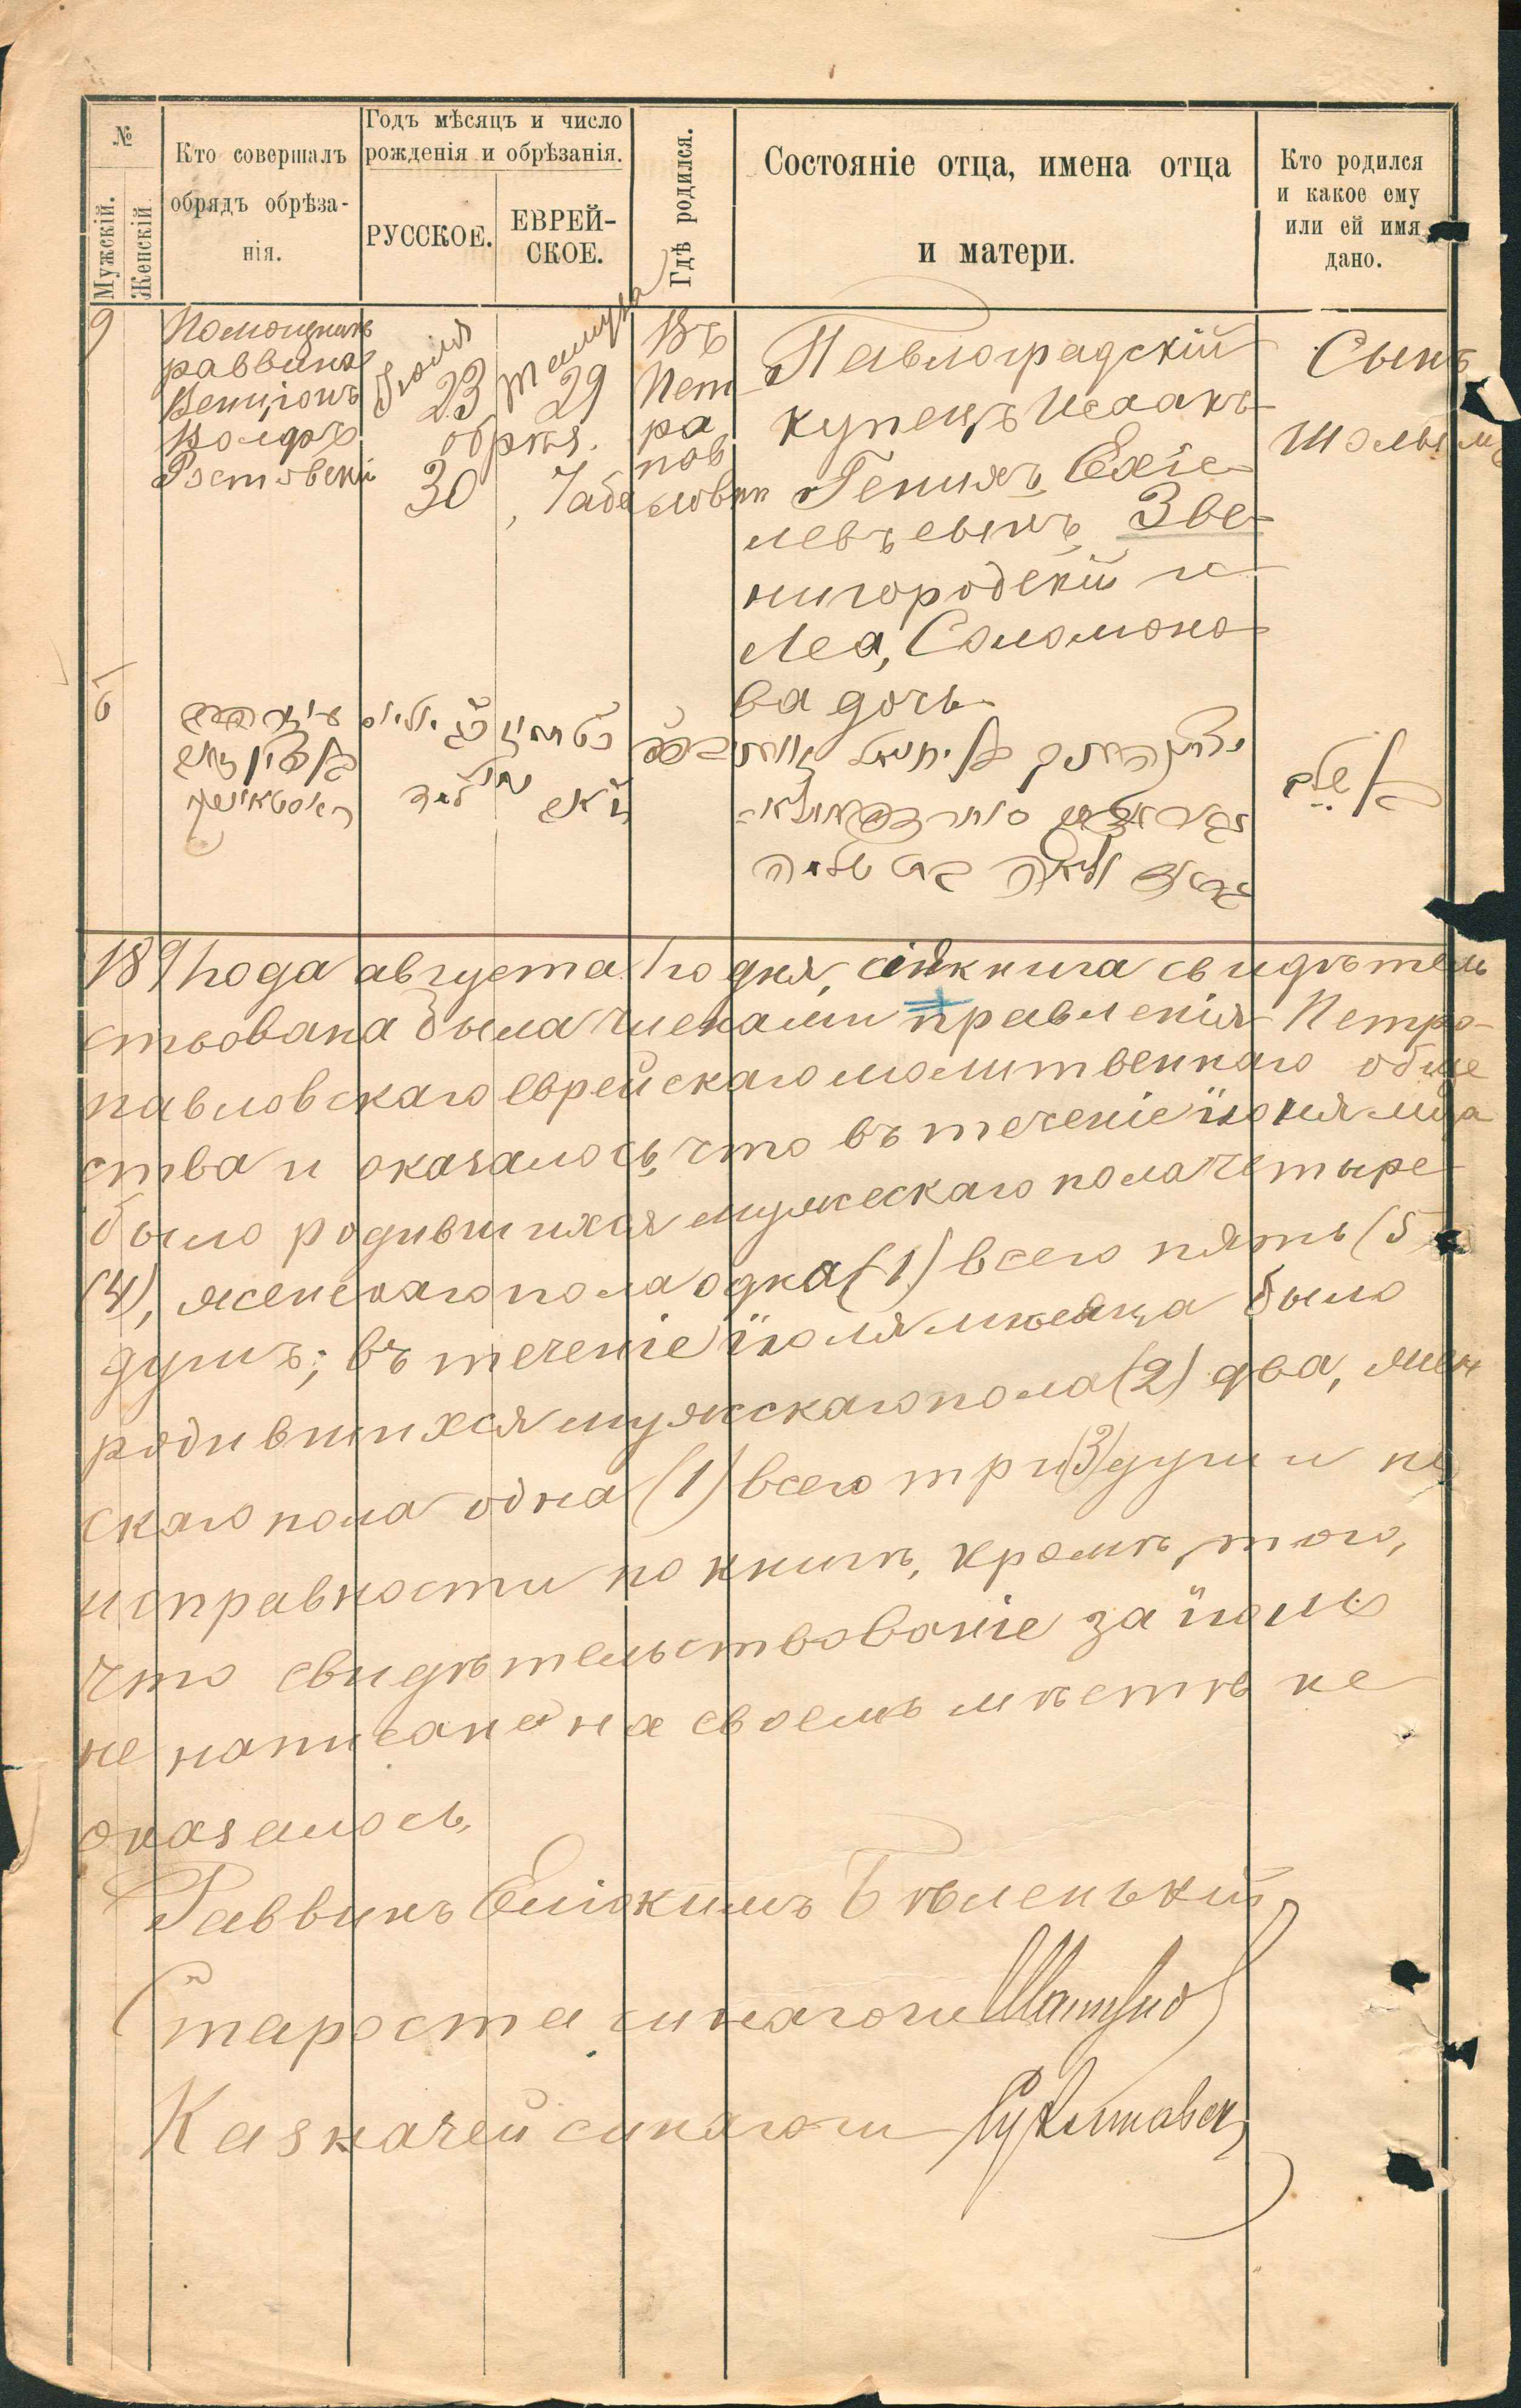 №
Мужскій.
Женскій
Кто совершалъ
обрядъ обрѣза-
нія.
Годъ мѣсяцъ и число
рожденія и обрѣзанія.
РУССКОЕ.
ЕВРЕЙ-
СКОЕ.
Гдѣ родился.
Состояніе отца, имена отца
и матери.
Кто родился
и какое ему
или ей имя
дано.
9
Помощникъ
раввина
Бенціонъ
Вольфъ
Ростовскій
Іюля
23
обрѣз.
30
Тамуза
29
7 аба
Въ
Пет
ра
пав
ловки
Павлоградскій
купецъ Исаакъ
Генихъ Ехіе-
левъ сынъ Зве-
нигородскій и
Леа, Соломоно-
ва дочь
Сынъ
6
1891 года августа 1го дня, сія книга свидѣтель
ствована была членами правленія Петро-
павловскаго еврейскаго молитвеннаго обще
ства и оказалось, что въ теченіе іюня мца
было родившихся мужескаго пола четыре
(4), женскаго пола одна (1) всего пять (5
душъ; въ теченіе іюля мѣсяца было
родившихся мужскаго пола (2) два, жен
скаго пола одна (1) всего три (3) души и не
исправности по книгѣ, кромѣ того,
что свидѣтельствованіе за іюнь
не написано на своемъ мѣстѣ не
оказалось.
Раввинъ Еліокимъ Бѣленькій
Староста синагоги
Казначей синагоги